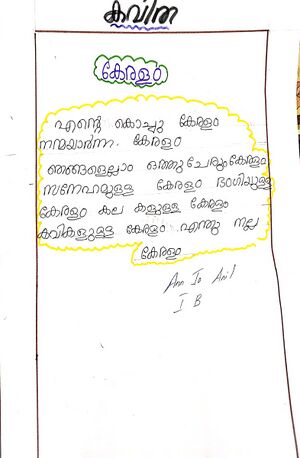 കവിത
കേരളം
എന്റെ കൊച്ചു കേരളം
നന്മയാർന്ന കേരളം
ഞങ്ങളെല്ലാം ഒത്തുചേരുംകേരളം
സനേഹമുള്ള കേരളം ഭംഗിയുള്ള
കേരളം കല കളുള്ള കേരളം
കവികളുള്ള കേരളം എന്തു നല്ല
കേരളം
Ann Jo Anil
I B